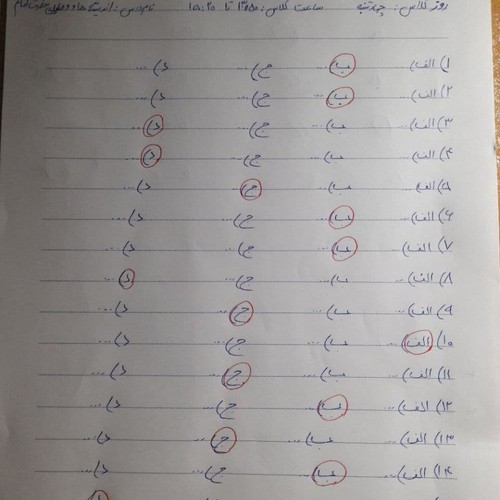 روز کلاس: چهارشنبه ساعت کلاس: ۱۳:۵۰ تا ۱۵:۲۰ نام درس: اندیشه ها و وصایای حضرت امام
۱) الف)... ب)... ج)... د)...
۲) الف)... ب)... ج)... د)...
۳) الف)... ب)... ج)... د)...
۴) الف)... ب)... ج)... د)...
۵) الف)... ب)... ج)... د)...
۶) الف)... ب)... ج)... د)...
۷) الف)... ب)... ج)... د)...
۸) الف)... ب)... ج)... د)...
۹) الف)... ب)... ج)... د)...
۱۰) الف)... ب)... ج)... د)...
۱۱) الف)... ب)... ج)... د)...
۱۲) الف)... ب)... ج)... د)...
۱۳) الف)... ب)... ج)... د)...
۱۴) الف)... ب)... ج)... د)...